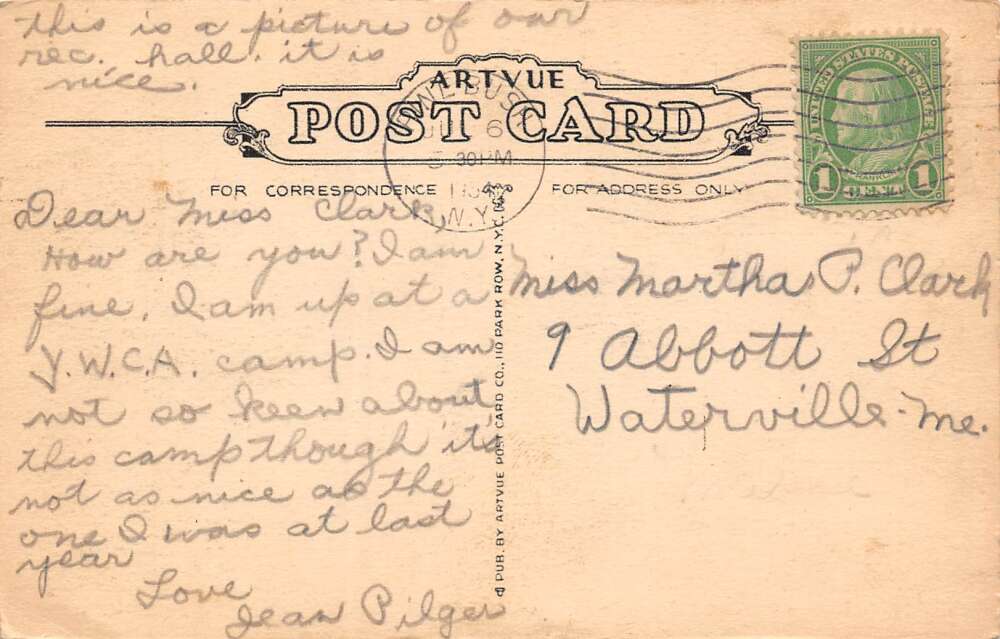 this is a picture of our
rec. hall. it is
nice.
ARTVUE
POST CARD
FOR CORRESPONDENCE
FOR ADDRESS ONLY
6
30 PM
N.Y.
UNITED STATES POSTAGE
FRANKLIN
1 CENT 1
Dear Miss Clark,
How are you? I am
fine. I am up at a
Y.W.C.A. camp. I am
not so keen about
this camp though it's
not as nice as the
one I was at last
year
Love
Jean Pilger
PUB. BY ARTVUE POST CARD CO., 110 PARK ROW, N.Y.C.
Miss Martha P. Clark
9 Abbott St
Waterville-Me.